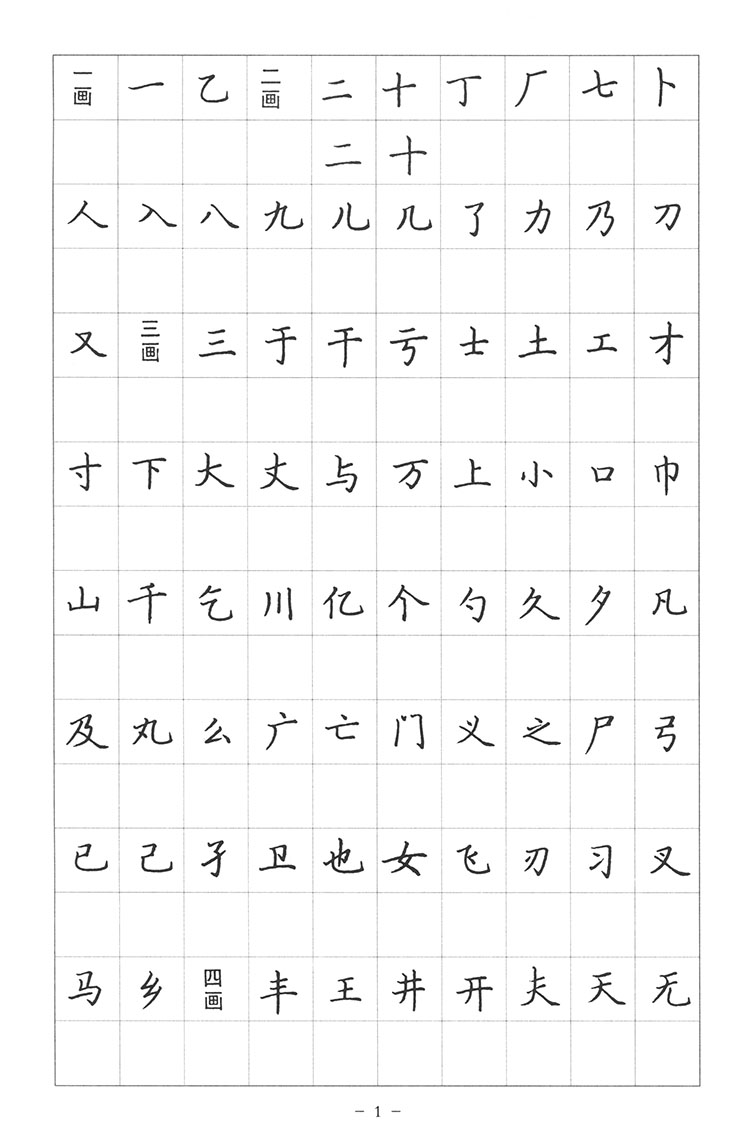 一画 一 乙 二画 二 十 丁 厂 七 卜
二 十
人 入 八 九 儿 几 了 力 乃 刀
又 三画 三 于 干 亏 士 土 工 才
寸 下 大 丈 与 万 上 小 口 巾
山 千 乞 川 亿 个 勺 久 夕 凡
及 丸 么 广 亡 门 义 之 尸 弓
已 己 孑 卫 也 女 飞 刃 习 叉
马 乡 四画 丰 王 井 开 夫 天 无
- 1 -